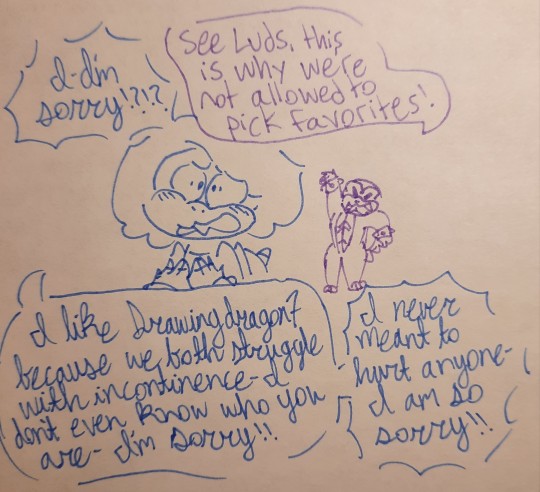 I-I'm
sorry!?!?
See Luds, this
is why we're
not allowed to
pick favorites!
I like Drawingdragon7
because we both struggle
with incontinence-I
don't even know who you
are- I'm sorry!!
I never
meant to
hurt anyone-
I am so
sorry!!